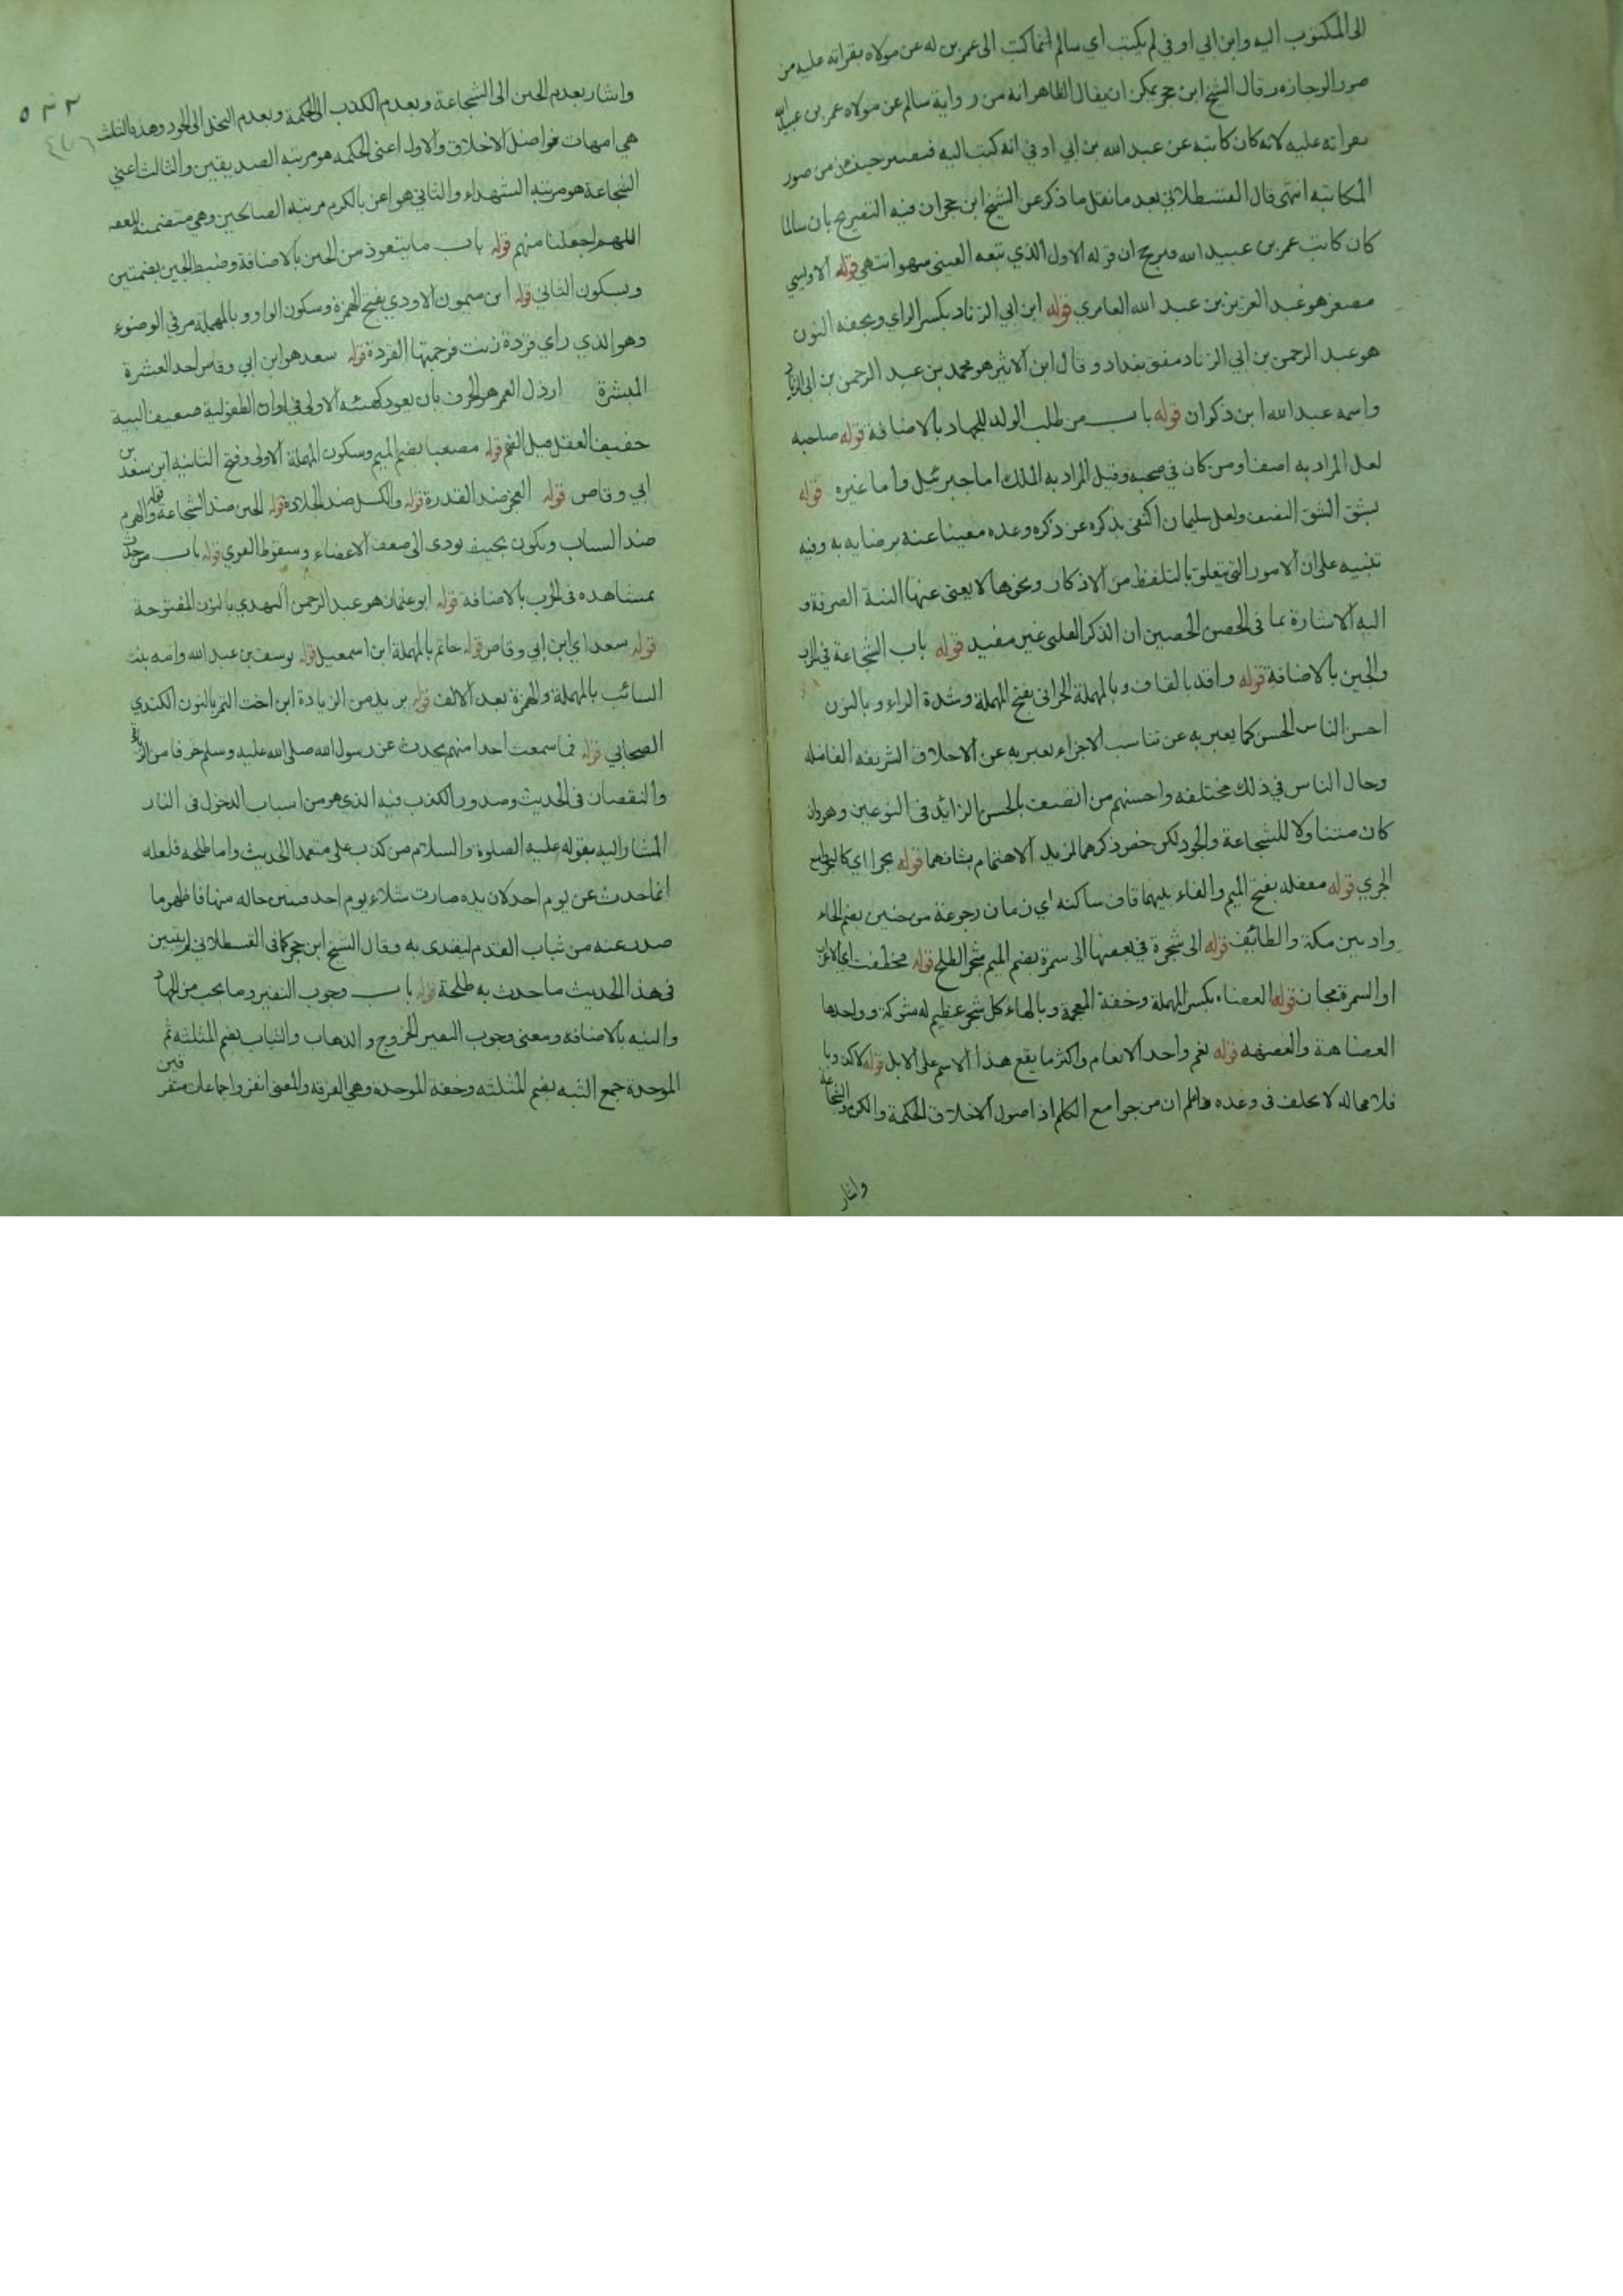 الى المكتوب اليه وابن ابي اوفى لم يكتب اي سالم انما كتب الى عمر بن له عن مولاه بقراته عليه من
صور الوجازه وقال الشيخ ابن حجر يمكن ان يقال الظاهر انه من رواية سالم عن مولاه عمر بن عبيد الله
بقراته عليه لانه كان كاتبه عن عبد الله بن ابي اوفى انه كتب اليه فيصير حينئذ من صور
المكاتبه انتهى قال القسطلاني بعد ما نقل ما ذكر عن الشيخ ابن حجر ان فيه التصريح بان سالما
كان كاتب عمر بن عبيد الله فيرجح ان قوله الاول الذي تبعه العيني سهو انتهى قوله الاويسي
مصغر هو عبد العزيز بن عبد الله العامري قوله ابن ابي الزناد بكسر الزاي وبخفه النون
هو عبد الرحمن بن ابي الزناد مفتى بغداد وقال ابن الاثير هو محمد بن عبد الرحمن بن ابي الزناد
واسمه عبد الله ابن ذكوان قوله باب من طلب الولد للجهاد بالاضافة قوله صاحبه
لعل المراد به اصف او من كان في صحبه وقيل المراد به الملك اما جبرئيل واما غيره قوله
بشق الشق النصف ولعل سليمان اكتفى بذكره عن ذكره وعده معينا عنه برضايه به وفيه
تنبيه على ان الامور التي تتعلق بالتلفظ من الاذكار ونحوها لا يغني عنها النية الصرفة و
اليه الاشارة بما في الحصن الحصين ان الذكر القلبي غير مفيد قوله باب الشجاعة في الحرب
والجبن بالاضافة قوله واقد بالقاف وبالمهملة الحراني بفتح المهملة وشدة الراء وبالنون
احسن الناس الحسن كما يعبر به عن تناسب الاجزاء يعبر به عن الاخلاق الشريفه الفاضله
وحال الناس في ذلك مختلفه واحسنهم من اتصف بالحسن الزايد في النوعين وهو وان
كان متناولا للشجاعة والجود لكن خص ذكرهما لمزيد الاهتمام بشانهما قوله بحرا اي كالبحر واسع
الجري قوله مقفله بفتح الميم والفاء بينهما قاف ساكنه اي زمان رجوعه من حنين بضم الحاء
واد بين مكة والطائف قوله الى شجرة في بعضها الى سمرة بضم الميم شجر الطلح قوله فخطفت اي الاعراب
او السمرة مجازا قوله العضاه بكسر المهملة وخفة المعجمة وبالهاء كل شجر عظيم له شوكة وواحدها
العضاهة والعضهه قوله نعم واحد الانعام واكثر ما يقع هذا الاسم على الابل قوله لا كذوبا
فلا محاله لا يخلف في وعده واعلم ان من جوامع الكلم اذ اصول الاخلاق الحكمة والكرم والشجاعة
واشار
٥٣٢
واشار بعدم الجبن الى الشجاعة وبعدم الكذب الى الحكمة وبعدم البخل الى الجود وهذه الثلث
هي امهات فواضل الاخلاق والاول اعنى الحكمه هو مرتبه الصديقين والثالث اعني
الشجاعة هو مرتبه الشهداء والثاني هو اعني بالكرم مرتبه الصالحين وهي متضمنة للعفه
اللهم اجعلنا منهم قوله باب ما يتعوذ من الجبن بالاضافة وضبط الجبن بضمتين
وبسكون الثاني قوله ابن ميمون الاودي بفتح الهمزة وسكون الواو وبالمهملة مر في الوضوء
وهو الذي راي قردة زنت فرجمتها القردة قوله سعد هو ابن ابي وقاص احد العشرة
المبشرة ارذل العمر هو الخرف بان يعود كهيئته الاولى في اوان الطفولية ضعيف البنية
خفيف العقل قليل الفهم قوله مصعبا بضم الميم وسكون المهملة الاولى وفتح الثانيه ابن سعد بن
ابي وقاص قوله العجز ضد القدرة قوله والكسل ضد الجلادة قوله الجبن ضد الشجاعة قوله والهرم
ضد الشباب ويكون بحيث يودي الى ضعف الاعضاء وسقوط القوي قوله باب من حدث
بمشاهده في الحرب بالاضافة قوله ابو عثمان هو عبد الرحمن النهدي بالنون المفتوحة
قوله سعدا اي ابن ابي وقاص قوله حاتم بالمهملة ابن اسمعيل قوله يوسف بن عبد الله وامه بنت
السائب بالمهملة والهمزة بعد الالف قوله يزيد من الزيادة ابن اخت النمر بالنون الكندي
الصحابي قوله فما سمعت احدا منهم يحدث عن رسول الله صلى الله عليه وسلم خوفا من الزيادة
والنقصان في الحديث وصدور الكذب فيه الذي هو من اسباب الدخول في النار
المشار اليه بقوله عليه الصلوة والسلام من كذب علي متعمدا الحديث واما طلحه فلعله
انما حدث عن يوم احد لان يده صارت شلاء يوم احد فبين حاله منها فاظهر ما
صدر عنه من ثبات القدم ليقتدى به وقال الشيخ ابن حجر كما في القسطلاني لم يتبين
في هذا الحديث ما حدث به طلحة قوله باب وجوب النفير وما يجب من الجهاد
والنيه بالاضافه ومعنى وجوب النفير الخروج والذهاب والثبات بضم المثلثه ثم
الموحدة جمع الثبه بضم المثلثه وخفة الموحدة وهي الفرقه والمعنى انفروا جماعات متفرقين